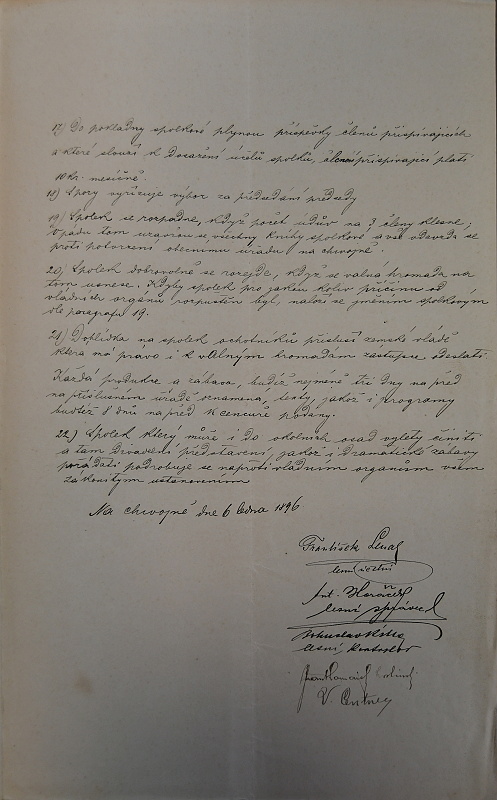 17.) Do pokladny spolkové plynou příspěvky členů přispívajících
a které slouží k dosažení účelů spolku, členové přispívající platí
10 kr. měsíčně.
18) Spory vyřizuje výbor za předsedání předsedy
19) Spolek se rozpadne, když počet údův na 3 členy klesne;
V pádu tom uzavrou se všechny knihy spolkové a vše odevzdá se
proti potvrzení obecnímu úřadu na chvojně.
20) Spolek dobrovolně se rozejde, když se valná hromada na
tom usnese. Kdyby spolek pro jakou koliv příčinu od
vládních orgánů rozpuštěn byl, naloží se jměním spolkovým
dle paragrafu 19.
21.) Dohlídka na spolek ochotníků přísluší zemské vládě
která má právo i k valným hromadám zástupce odeslati.
Každá produkce a zábava, budiž nejméně tři dny na před
na příslušném úřadě oznámena, texty, jakož i programy
buďtež 8 dnů na před k censuře podány.
22.) Spolek který může i do okolních osad výlety činiti
a tam divadelní představení, jakož i dramatické zábavy
pořádati podrobuje se naproti vládním orgánům všem
zákonitým ustanovením
Na chvojně dne 6 ledna 1896
František
lesní účetní
Ant. Horáček
lesní správce
Bohuslav
lesní
V.